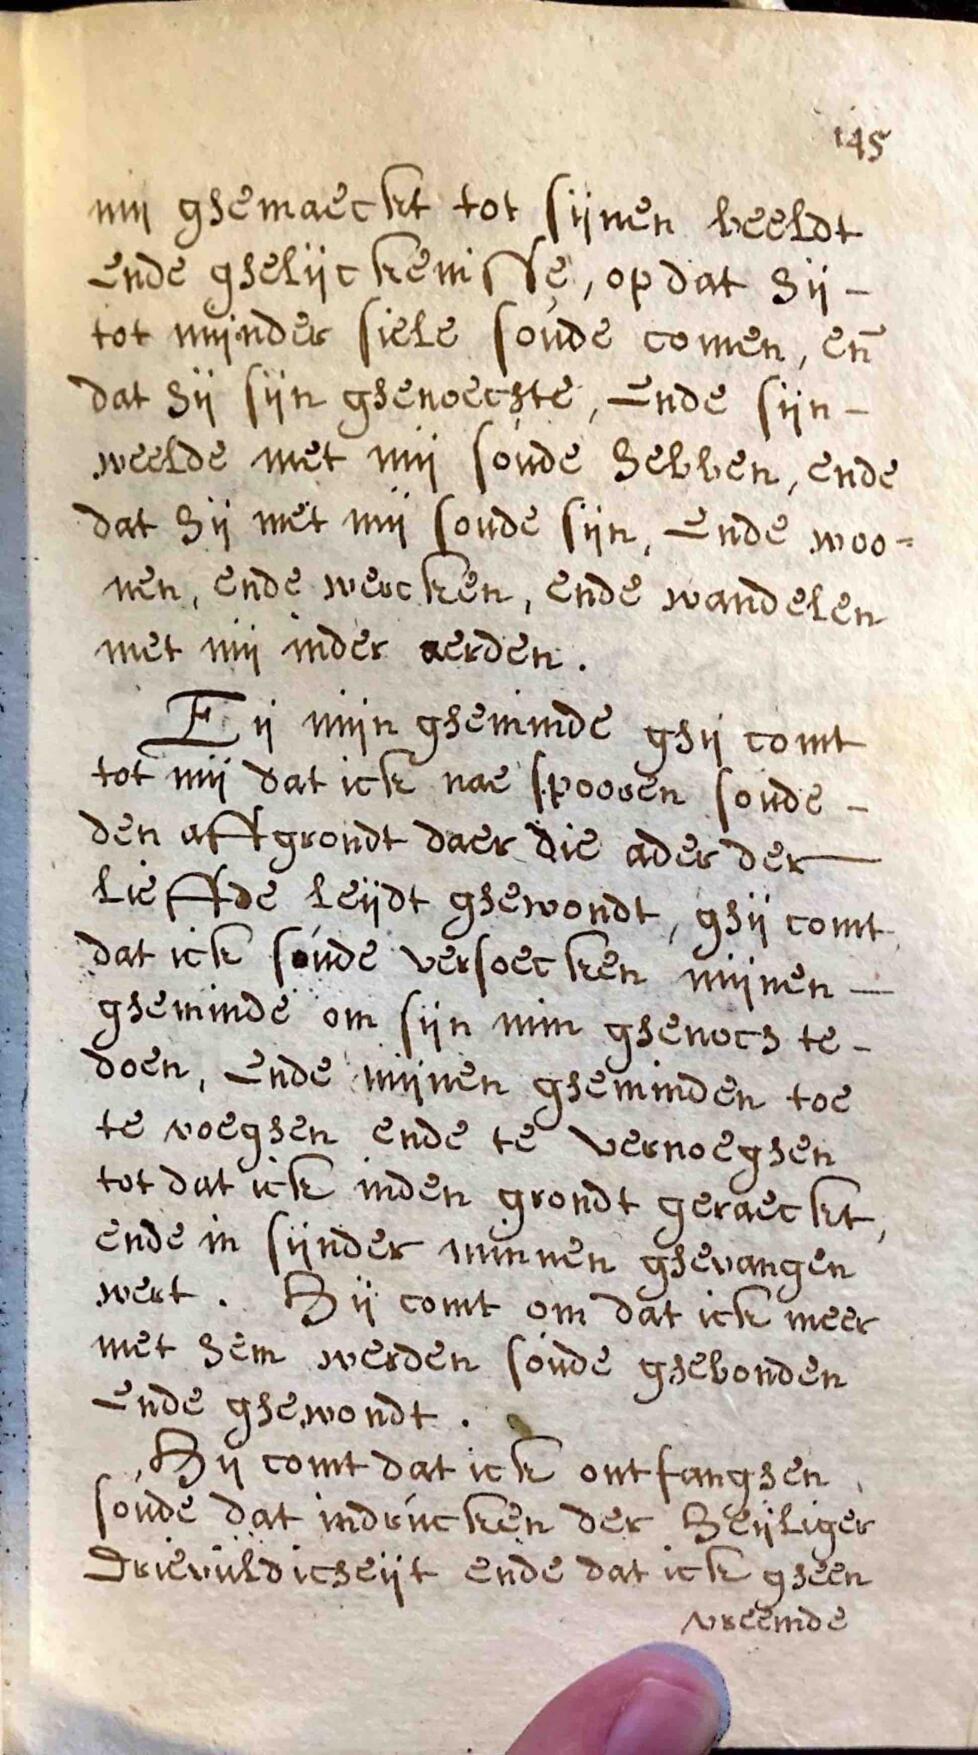 145
mij ghemaeckt tot sijnen beeldt
Ende ghelijckenisse, op dat hij -
tot mijnder siele soude comen, en̄
dat hij sijn ghenoechte, Ende sijn -
weelde met mij soude hebben, ende
dat hij met mij soude sijn, Ende woo-
nen, ende wercken, ende wandelen
met mij inder aerden.
Eij mijn gheminde ghij comt
tot mij dat ick nae spooren soude -
den affgrondt daer die ader der —
Lieffde leijdt ghewondt, ghij comt
dat ick soude versoecken mijnen —
gheminde om sijn min ghenoch te -
doen, Ende mijnen gheminden toe
te voeghen ende te vernoeghen
tot dat ick inden grondt geraeckt,
ende in sijnder minnen ghevangen
wert. Hij comt om dat ick meer
met hem werden soude ghebonden
Ende ghewondt.
Hij comt dat ick ontfanghen
soude dat indrucken der heijliger
Drievuldicheijt ende dat ick gheen
vreemde